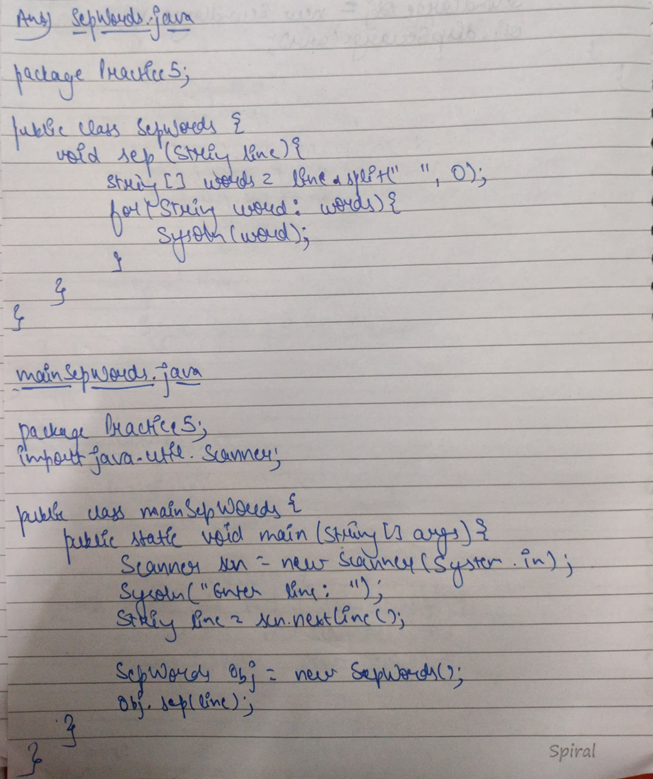 Ans) SepWords.java
package Practice5;
public class SepWords {
void sep (String line){
String [] words = line.split(" ", 0);
for (String word : words){
Sysoln(word);
}
}
}
mainSepWords.java
package Practice5;
import java.util.Scanner;
public class mainSepWords {
public static void main (String [] args) {
Scanner scn = new Scanner (System.in);
Sysoln("Enter line: ");
String line = scn.nextLine();
SepWords obj = new SepWords();
obj.sep(line);
}
}
Spiral